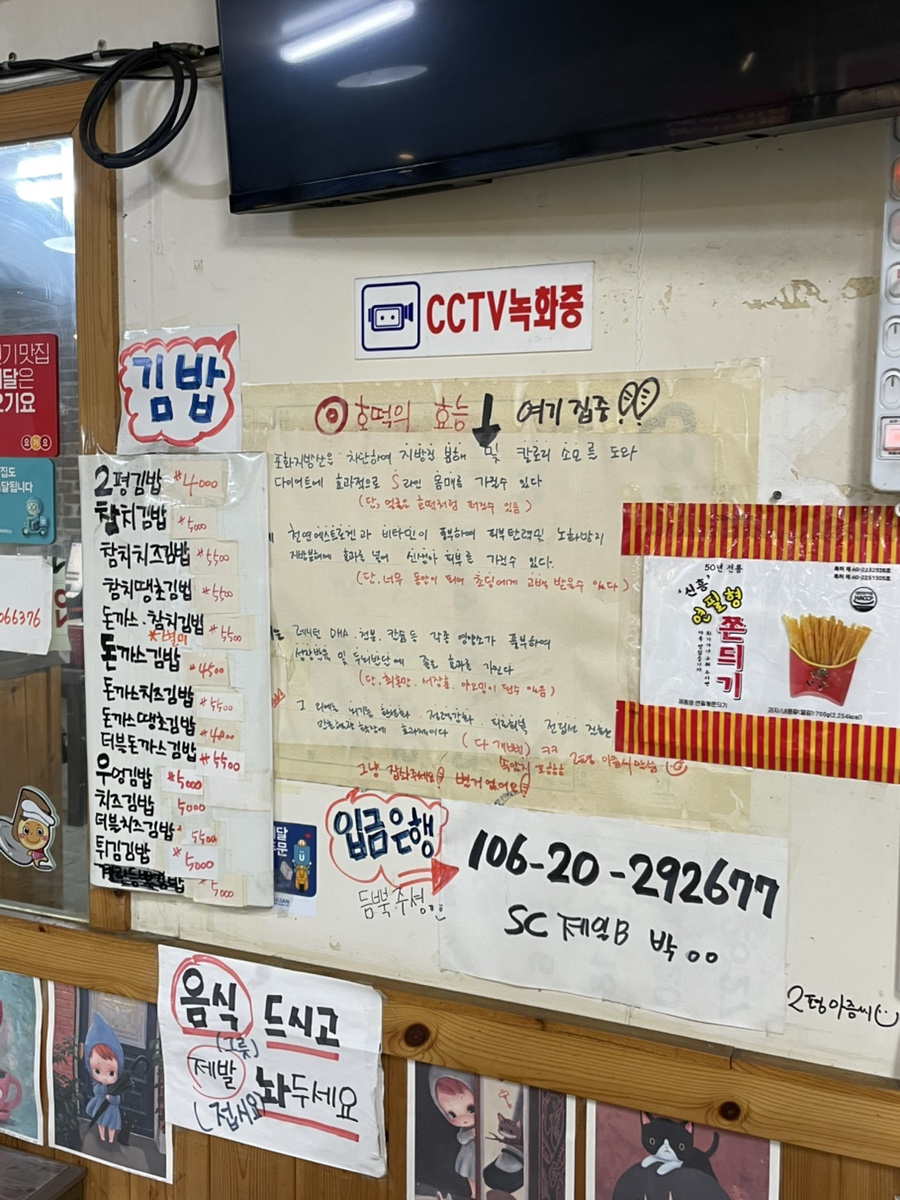 CCTV녹화중
김밥
2평김밥 ₩4000
참치김밥 ₩5000
참치치즈김밥 ₩5500
참치땡초김밥 ₩5500
돈까스.참치김밥 ₩5500
돈까스김밥 ₩4500
돈까스치즈김밥 ₩5500
돈까스땡초김밥 ₩4800
더블돈까스김밥 ₩5500
우엉김밥 ₩5000
치즈김밥 5000
더블치즈김밥 5500
튀김김밥 ₩5000
₩5000
호떡의 효능 여기 집중
포화지방산은 차단하여 지방질 분해 및 칼로리 소모를 도와
다이어트에 효과적으로 S라인 몸매를 가질수 있다
(단, 얼굴은 호떡처럼 퍼질수 있음)
천연에스트로겐과 비타민이 풍부하여 피부탄력및 노화방지
지방분해에 효과를 넣어 신생아 피부를 가질수 있다.
(단, 너무 동안이 되어 초딩에게 고백 받을수 있다)
레시틴 DHA 철분. 칼슘등 각종 영양소가 풍부하여
성장발육 및 두뇌발달에 좋은 효과를 가진다
(단, 최홍만. 서장훈.
그 외에도
(다 개뻥) ㅋㅋ
그냥 잡숴주세요 별거 없어요
50년 전통
'신흥'
연필형
쫀듸기
특허 제 40-2232926호
특허 제 40-2251305호
HACCP
제품명:연필형쫀듸기
700g(2,254kcal)
입금은행
듬뿍주셩
106-20-292677
SC 제일B 박00
2평아줌씨
음식 드시고
(그릇)
제발 놔두세요
접시요
기맛집
달은
요기요
집도
달됩니다
066376